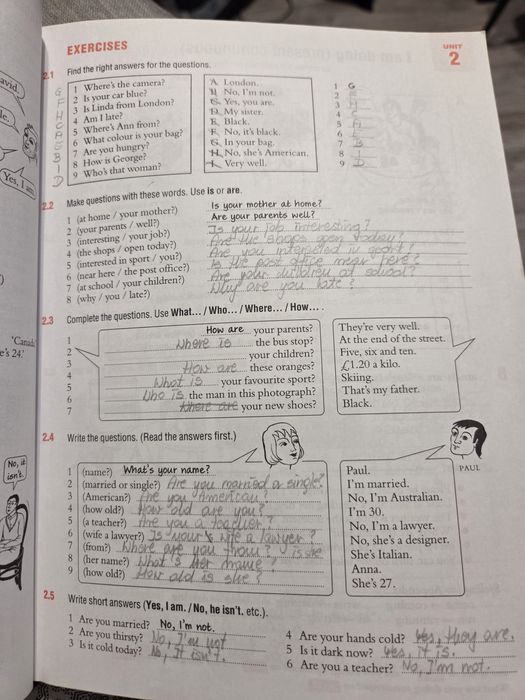 EXERCISES
UNIT
2
2.1 Find the right answers for the questions.
G 1 Where's the camera?
F 2 Is your car blue?
H 3 Is Linda from London?
C 4 Am I late?
A 5 Where's Ann from?
E 6 What colour is your bag?
B 7 Are you hungry?
I 8 How is George?
D 9 Who's that woman?
A London.
B No, I'm not.
C Yes, you are.
D My sister.
E Black.
F No, it's black.
G In your bag.
H No, she's American.
I Very well.
1 G
2 F
3 H
4 C
5 A
6 E
7 B
8 I
9 D
2.2 Make questions with these words. Use is or are.
1 (at home / your mother?) Is your mother at home?
2 (your parents / well?) Are your parents well?
3 (interesting / your job?) Is your job interesting?
4 (the shops / open today?) Are the shops open today?
5 (interested in sport / you?) Are you interested in sport?
6 (near here / the post office?) Is the post office near here?
7 (at school / your children?) Are your children at school?
8 (why / you / late?) Why are you late?
2.3 Complete the questions. Use What... / Who... / Where... / How... .
1 How are your parents?
2 Where is the bus stop?
3 your children?
4 How are these oranges?
5 What is your favourite sport?
6 Who is the man in this photograph?
7 Where are your new shoes?
They're very well.
At the end of the street.
Five, six and ten.
£1.20 a kilo.
Skiing.
That's my father.
Black.
2.4 Write the questions. (Read the answers first.)
1 (name?) What's your name?
2 (married or single?) Are you married or single?
3 (American?) Are you American?
4 (how old?) How old are you?
5 (a teacher?) Are you a teacher?
6 (wife a lawyer?) Is your wife a lawyer?
7 (from?) Where are you from? is she
8 (her name?) What's her name?
9 (how old?) How old is she?
Paul.
I'm married.
No, I'm Australian.
I'm 30.
No, I'm a lawyer.
No, she's a designer.
She's Italian.
Anna.
She's 27.
PAUL
2.5 Write short answers (Yes, I am. / No, he isn't. etc.).
1 Are you married? No, I'm not.
2 Are you thirsty? No, I'm not
3 Is it cold today? No, It isn't.
4 Are your hands cold? Yes, they are.
5 Is it dark now? Yes, it is.
6 Are you a teacher? No, I'm not.
Yes, I am
'Canada
e's 24.'
No, it
isn't.